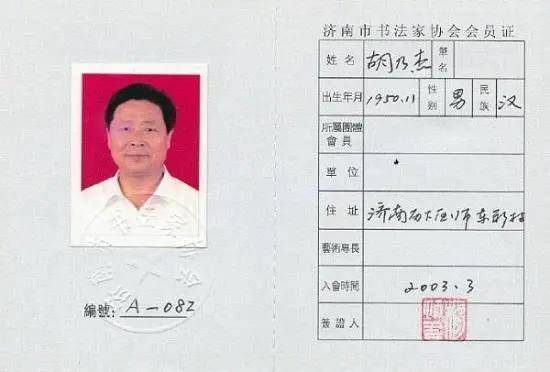 编號: A-082
济南市书法家协会会员证
姓名 胡乃杰 筆名
出生年月 1950.11 性别 男 民族 汉
所屬團體會員
單位
住址 济南
藝術專長
入會時間 2003.3
簽證人